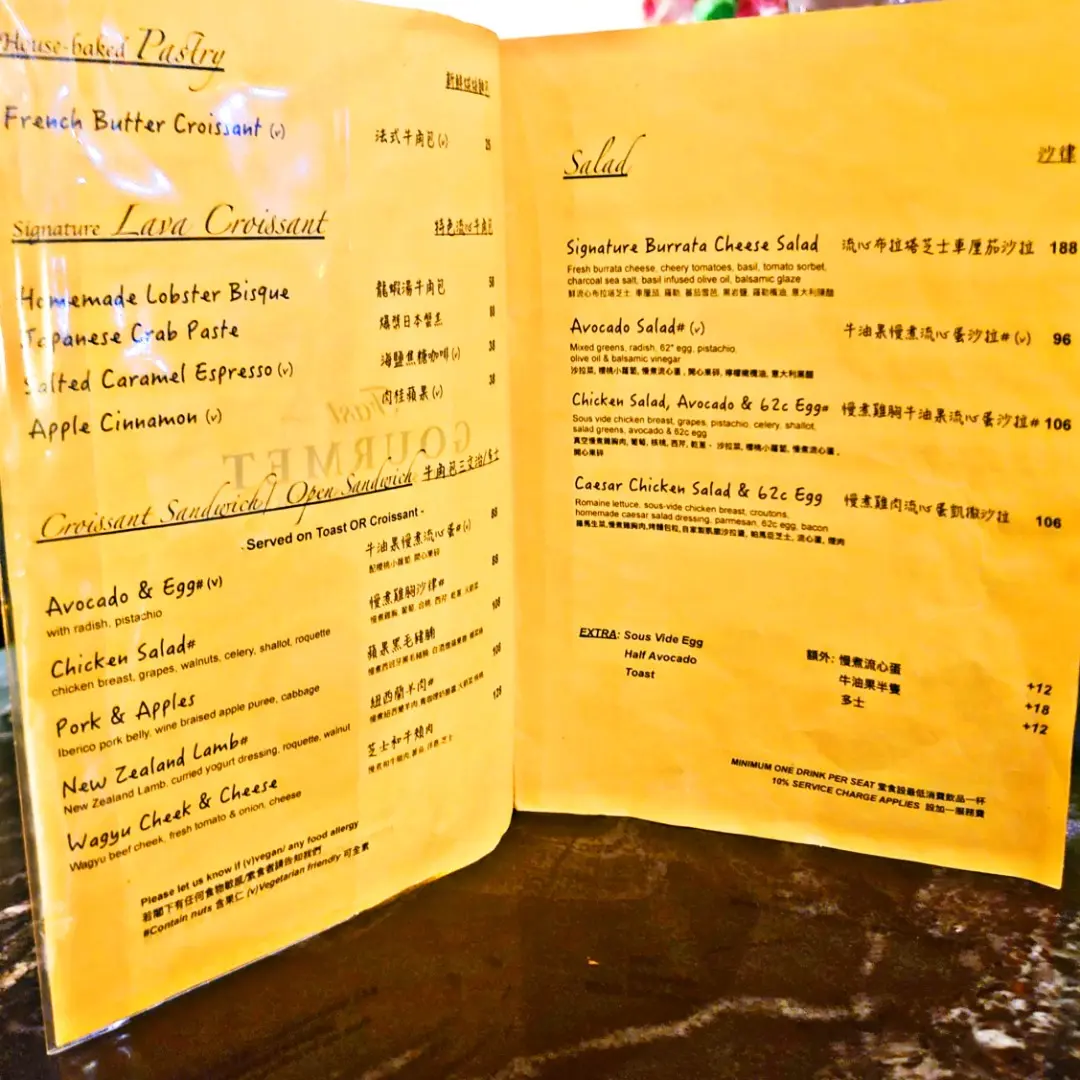 House-baked Pastry
新鮮烘焙麵包
French Butter Croissant (v) 法式牛角包(v)
Signature Lava Croissant 特色流心牛角包
Homemade Lobster Bisque 龍蝦湯牛角包
Japanese Crab Paste 爆漿日本蟹羔
Salted Caramel Espresso (v) 海鹽焦糖咖啡(v) 38
Apple Cinnamon (v) 肉桂蘋果(v) 38
Fast
GOURMET
Croissant Sandwich/ Open Sandwich 牛角包三文治/多士
- Served on Toast OR Croissant -
Avocado & Egg# (v) 牛油果慢煮流心蛋#(v) 88
with radish, pistachio 配櫻桃小蘿蔔, 開心果碎
Chicken Salad# 慢煮雞胸沙律# 88
chicken breast, grapes, walnuts, celery, shallot, roquette
Pork & Apples 蘋果黑毛豬腩 108
Iberico pork belly, wine braised apple puree, cabbage
New Zealand Lamb# 紐西蘭羊肉# 108
New Zealand Lamb, curried yogurt dressing, roquette, walnut
Wagyu Cheek & Cheese 芝士和牛頰肉 128
Wagyu beef cheek, fresh tomato & onion, cheese
Please let us know if (v)vegan/ any food allergy
若閣下有任何食物敏感/素食者請告知我們
#Contain nuts 含果仁 (v)Vegetarian friendly 可全素
Salad 沙律
Signature Burrata Cheese Salad 流心布拉塔芝士車厘茄沙拉 188
Fresh burrata cheese, cheery tomatoes, basil, tomato sorbet,
charcoal sea salt, basil infused olive oil, balsamic glaze
鮮流心布拉塔芝士, 車厘茄, 羅勒, 蕃茄雪芭, 黑岩鹽, 羅勒欖油, 意大利陳醋
Avocado Salad# (v) 牛油果慢煮流心蛋沙拉# (v) 96
Mixed greens, radish, 62" egg, pistachio,
olive oil & balsamic vinegar
沙拉菜, 櫻桃小蘿蔔, 慢煮流心蛋, 開心果碎, 檸檬橄欖油, 意大利黑醋
Chicken Salad, Avocado & 62c Egg# 慢煮雞胸牛油果流心蛋沙拉# 106
Sous vide chicken breast, grapes, pistachio, celery, shallot,
salad greens, avocado & 62c egg
真空慢煮雞胸肉, 葡萄, 核桃, 西芹, 乾蔥, 沙拉菜, 櫻桃小蘿蔔, 慢煮流心蛋,
開心果碎
Caesar Chicken Salad & 62c Egg 慢煮雞肉流心蛋凱撒沙拉 106
Romaine lettuce, sous-vide chicken breast, croutons,
homemade caesar salad dressing, parmesan, 62c egg, bacon
羅馬生菜, 慢煮雞胸肉, 烤麵包粒, 自家製凱撒沙拉醬, 帕馬臣芝士, 流心蛋, 煙肉
EXTRA: Sous Vide Egg 額外: 慢煮流心蛋 +12
Half Avocado 牛油果半隻 +18
Toast 多士 +12
MINIMUM ONE DRINK PER SEAT 堂食設最低消費飲品一杯
10% SERVICE CHARGE APPLIES 設加一服務費